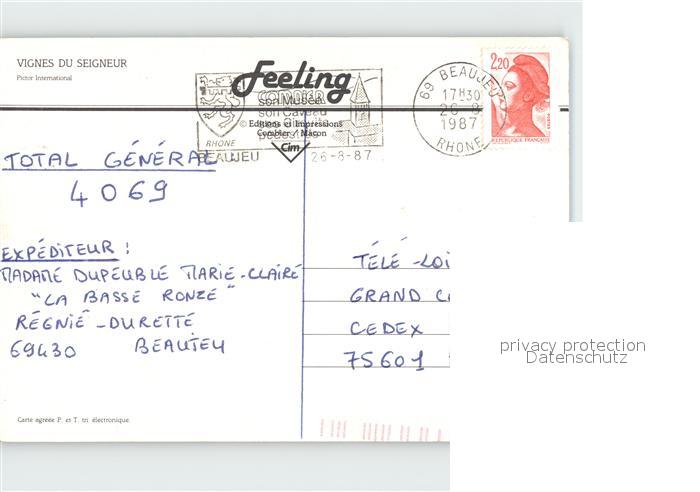 VIGNES DU SEIGNEUR
Pictor International
Feeling
son Musée
son Caveau
© Editions et Impressions
Combier Mâcon
Cim
RHONE
BEAUJEU 26-8-87
69 BEAUJEU
17H30
26-8
1987
RHONE
2,20
POSTES
REPUBLIQUE FRANÇAISE
TOTAL GÉNÉRAL
4069
EXPÉDITEUR :
MADAME DUPEUBLE MARIE-CLAIRE
"LA BASSE RONZE"
RÉGNIÉ-DURETTE
69430 BEAUJEU
TÉLÉ-LOI
GRAND C
CEDEX
75601
Carte agréée P. et T. tri électronique.
privacy protection
Datenschutz